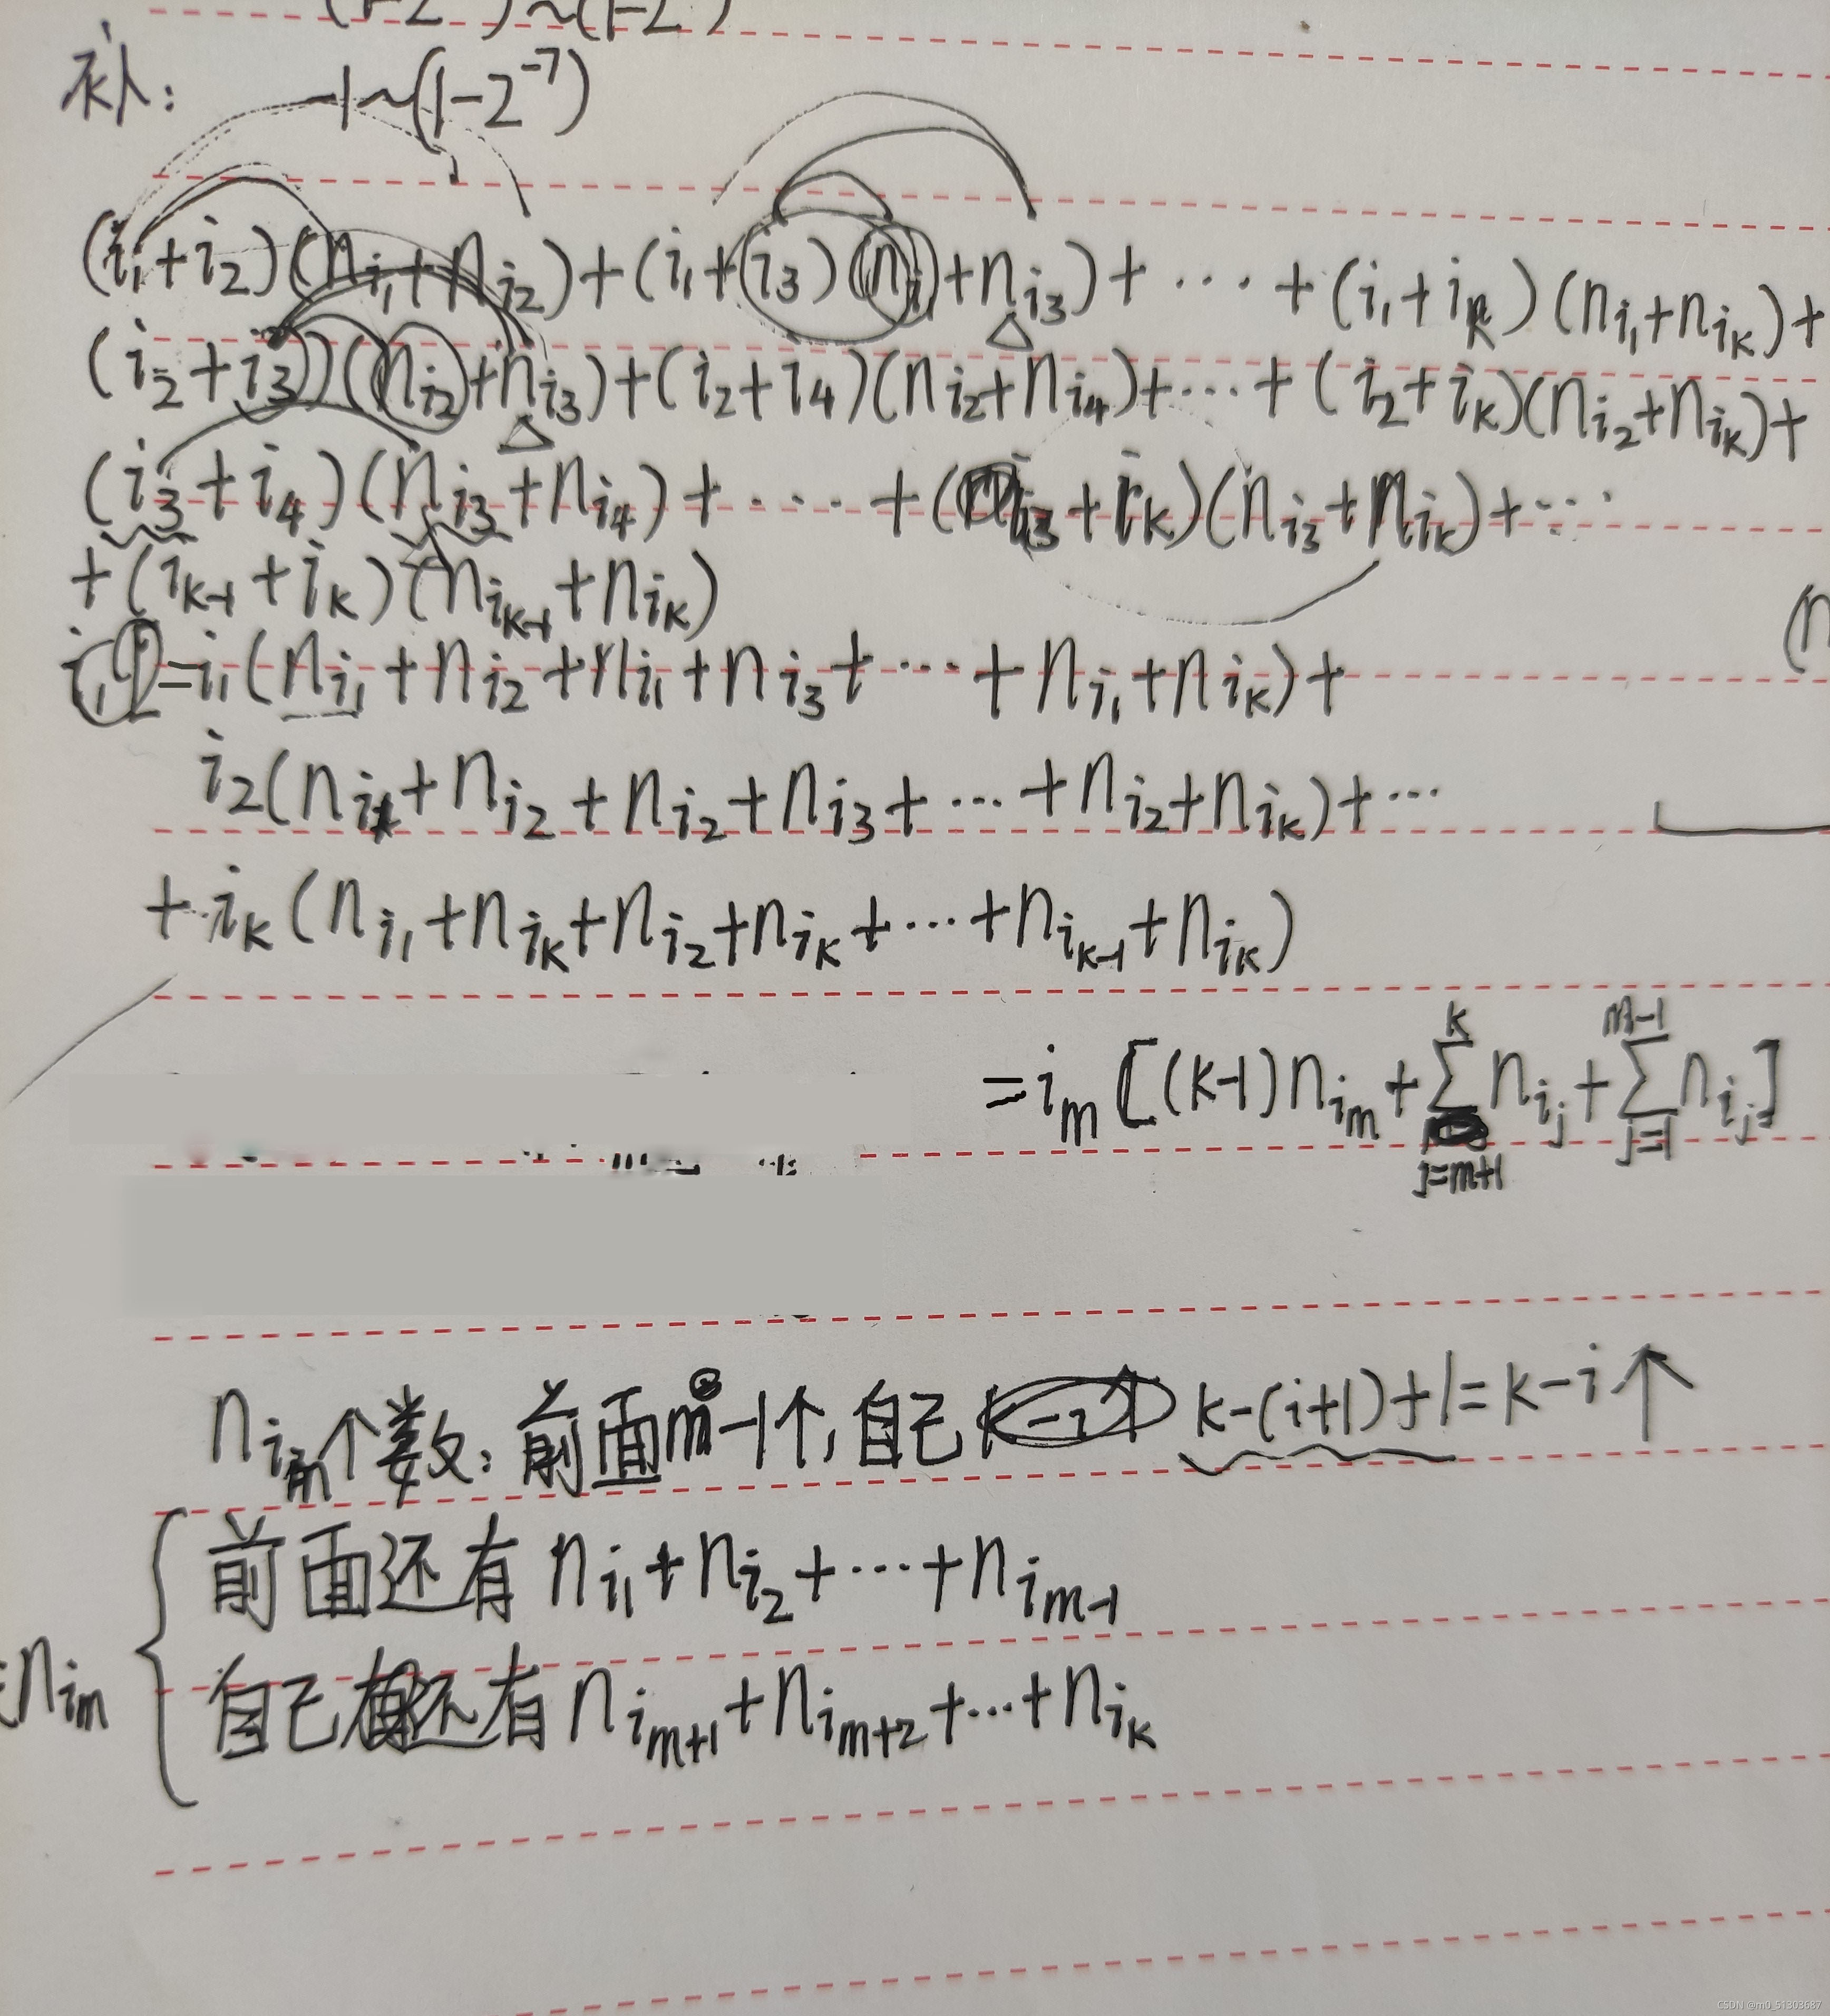 补: -1~(1-2^{-7})
(i₁+i₂)(n_{i₁}+n_{i₂})+(i₁+i₃)(n_{i₁}+n_{i₃})+⋯+(i₁+i_k)(n_{i₁}+n_{i_k})+
(i₂+i₃)(n_{i₂}+n_{i₃})+(i₂+i₄)(n_{i₂}+n_{i₄})+⋯+(i₂+i_k)(n_{i₂}+n_{i_k})+
(i₃+i₄)(n_{i₃}+n_{i₄})+⋯+(i₃+i_k)(n_{i₃}+n_{i_k})+⋯
+(i_{k-1}+i_k)(n_{i_{k-1}}+n_{i_k})
=i₁(n_{i₁}+n_{i₂}+n_{i₁}+n_{i₃}+⋯+n_{i₁}+n_{i_k})+
i₂(n_{i₁}+n_{i₂}+n_{i₂}+n_{i₃}+⋯+n_{i₂}+n_{i_k})+⋯
+i_k(n_{i₁}+n_{i_k}+n_{i₂}+n_{i_k}+⋯+n_{i_{k-1}}+n_{i_k})
=i_m[(k-1)n_{i_m}+∑_{j=m+1}^{k}n_{i_j}+∑_{j=1}^{m-1}n_{i_j}]
n_{i_m}个数:前面m-1个,自己 k-(i+1)+1=k-i个
前面还有 n_{i₁}+n_{i₂}+⋯+n_{i_{m-1}}
n_{i_m}
自己还有 n_{i_{m+1}}+n_{i_{m+2}}+⋯+n_{i_k}
CSDN @m0_51303687